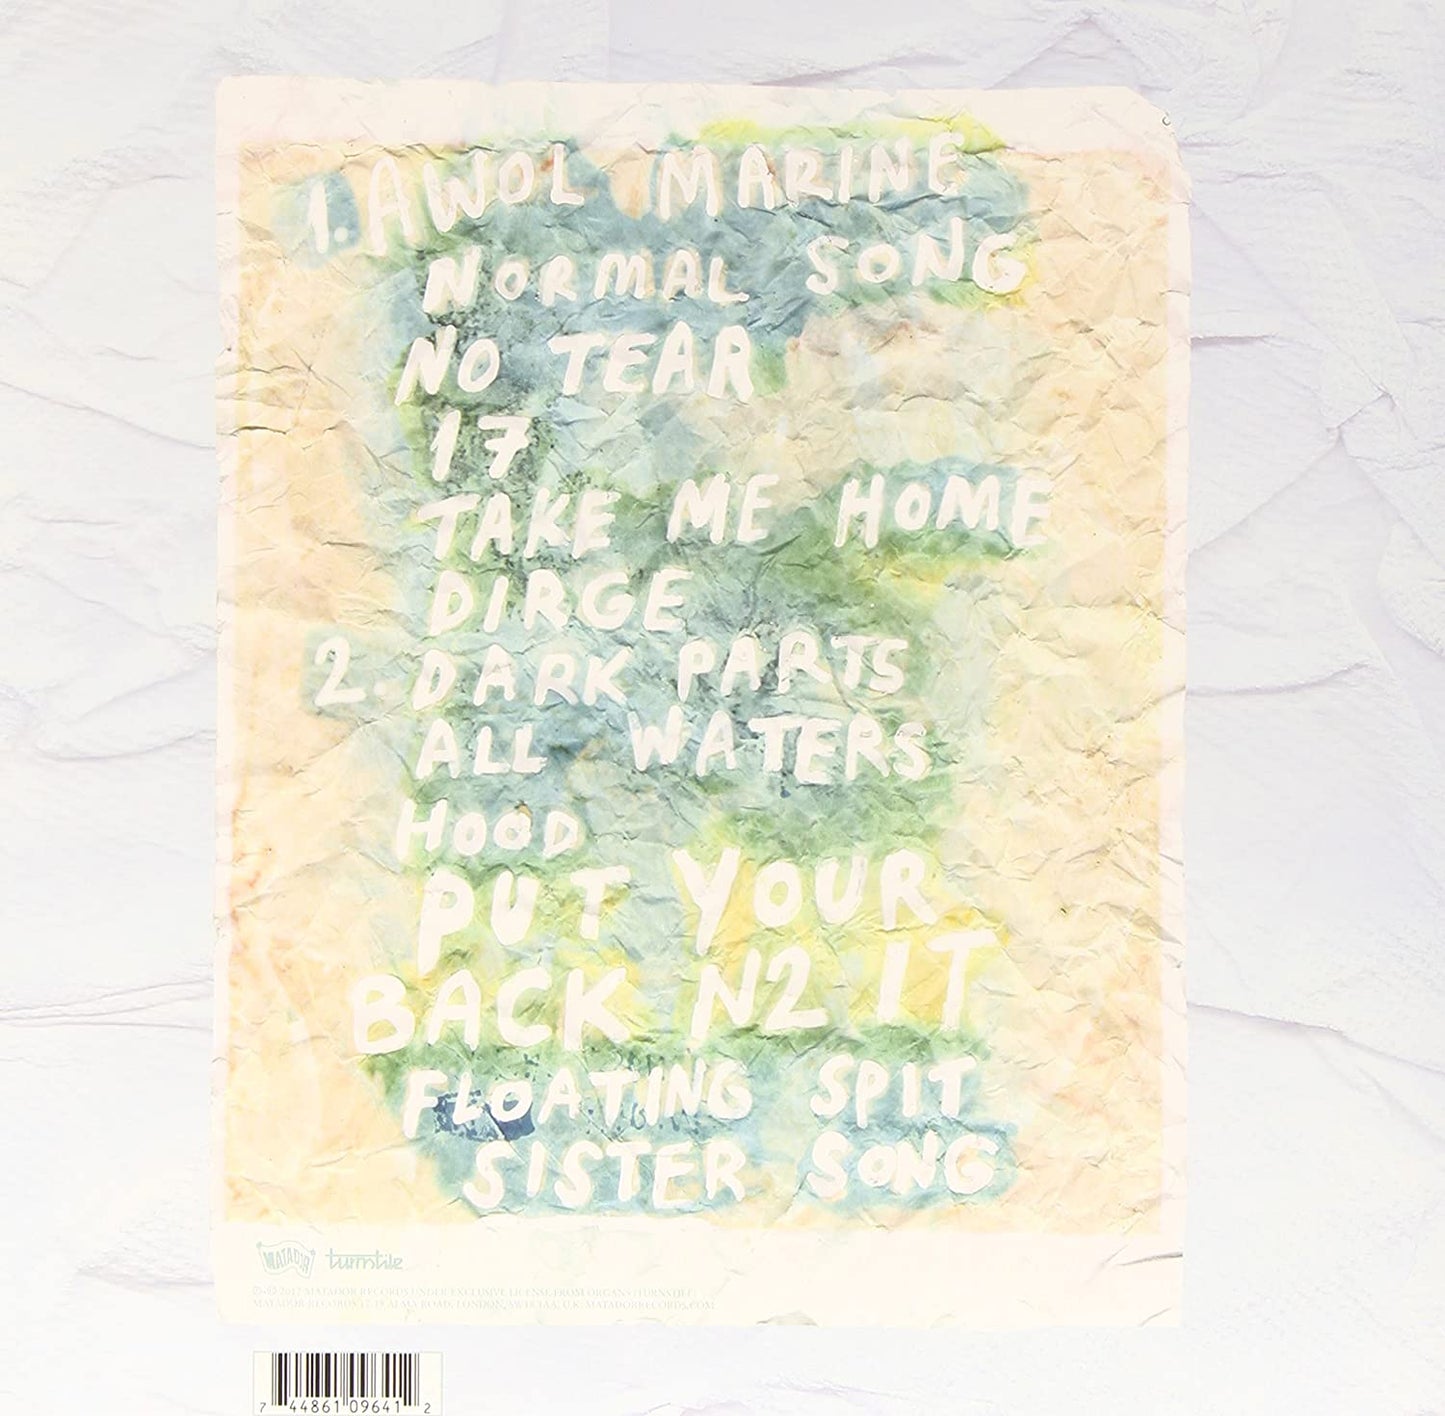 1. AWOL MARINE
NORMAL SONG
NO TEAR
17
TAKE ME HOME
DIRGE
2. DARK PARTS
ALL WATERS
HOOD
PUT YOUR
BACK N2 IT
FLOATING SPIT
SISTER SONG
MATADOR turnstile
MATADOR RECORDS UNDER EXCLUSIVE LICENSE FROM
MATADOR RECORDS 17-19 ALMA ROAD, LONDON, U.K. MATADORRECORDS.COM
7 44861 09641 2